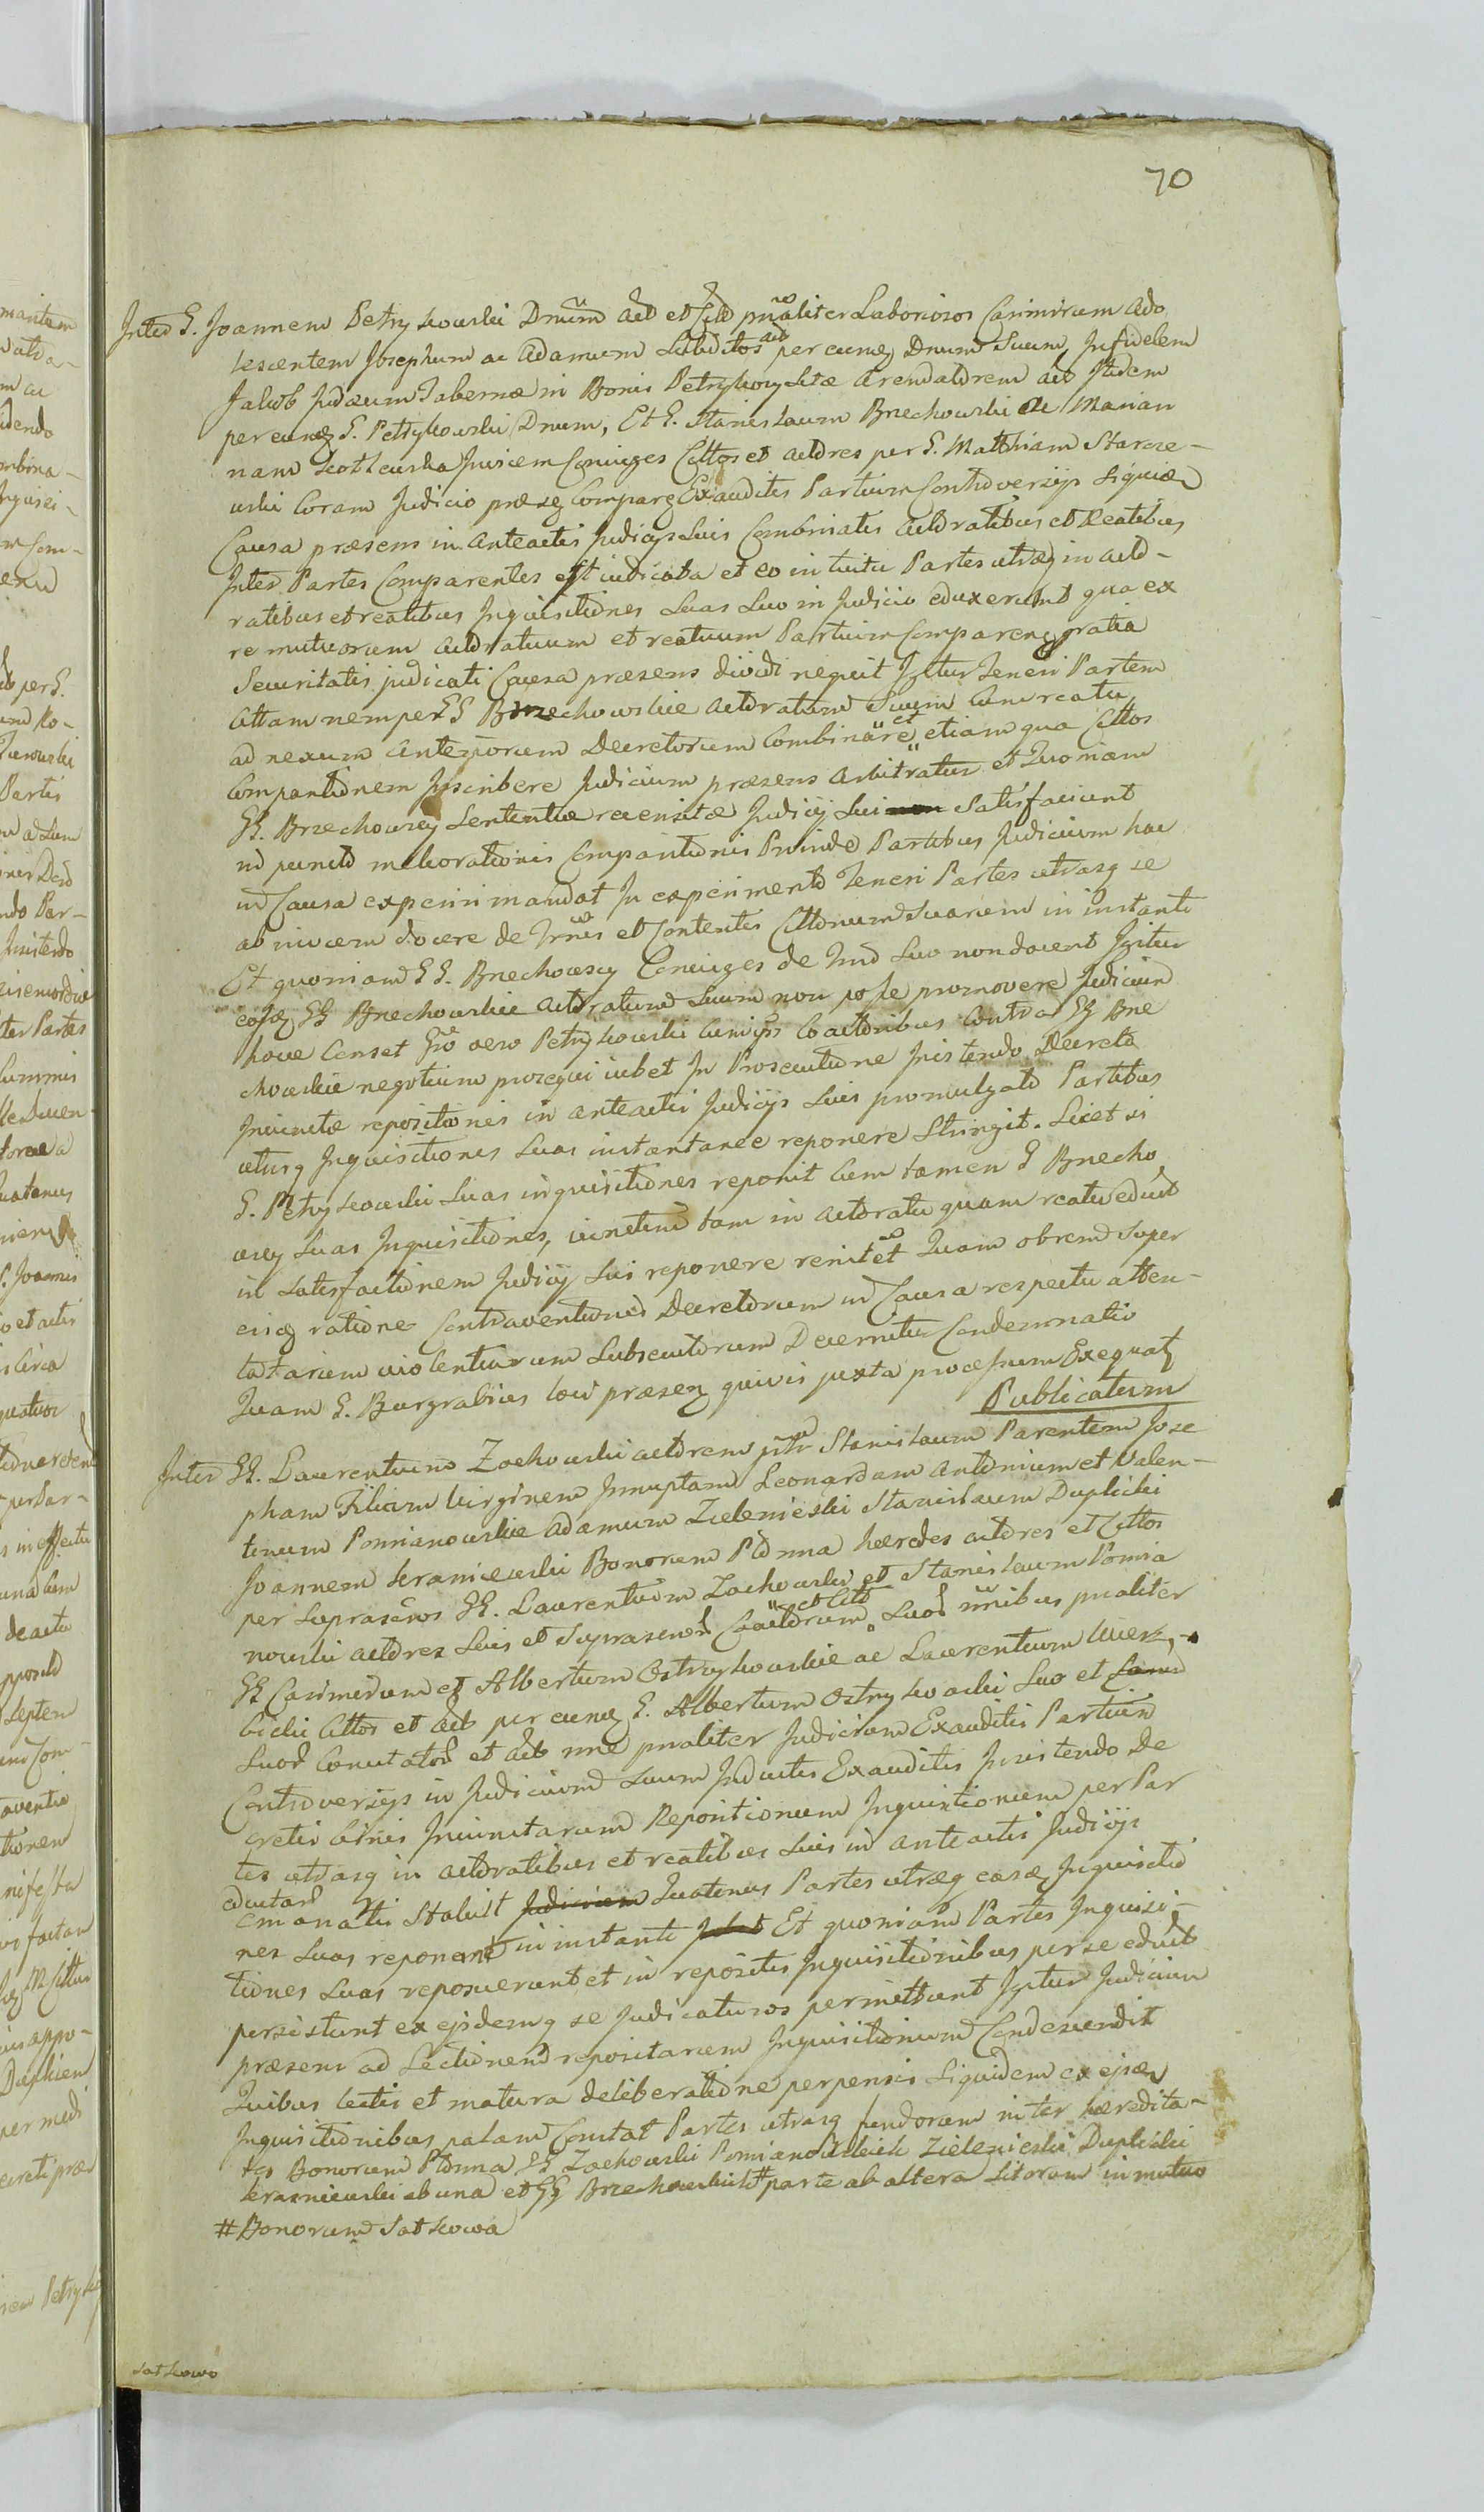 70
Inter G. Joannem Petrykowski Dnum act et Citt pnaliter Laboriosos Casimirum ado
lescentem Josephum ac Adamum Subditos act per eumq Dnum Suum, Infidelem
Jakob Judæum Tabernæ in Bonis Petrykozy Sitæ Arendatorem act Itidem
per eundq G. Petrykowski Dnum, Et G. Stanislaum Brzechowski ac Marian
nam Invicem Coniuges Cittos et actores per G. Matthiam Starcze-
wski Coram Judicio præsq Comparq Exauditis Partium Controversijs Siquidē
Causa præsens in anteactis Judicijs Suis Combinatis actoratibus et Reatibus
Inter Partes Comparentes est iudicata et eo intuitu Partes utræq in acto-
ratibus et reatibus Inquisitiones Suas Suo in Judicio eduxerunt qua ex
re mutuorum actoratuum et reatuum Partium Comparenq gratia
Securitatis judicati Causa præsens dividi nequit Igitur Teneri Partem
Cittam nempe GG Brzechowskie actoratum Suum Cum reatu
ad nexum anteriorum Decretorum Combinare et etiam qua Cittos
Compartionem Inscribere Judicium præsens arbitratur et Quoniam
GG. Brzechowscy Sententiæ recensitæ Judicij Sui non Satisfaciunt
in puncto meliorationis Compartionis Proinde Partibus Judicium hac
in Causa experiri mandat In experimento Teneri Partes utrasq se
ab invicem docere de Trnis et Contentis Cittonum Suarum in instanti
Et quoniam GG. Brzechowscy Coniuges de Trno Suo non docent Igitur
eosq GG Brzechowskie actoratum Suum non posse promovere Judicium
hocce Censet Gso vero Petrykowski Cumqs Coactoribus Contra GG Brze
chowskie negotium prosequi iubet In Prosecutione Insistendo Decreto
Inunctæ repositionis in anteactis Judicijs Suis promulgato Partibus
utrisq Inquisitiones Suas instantanee reponere Stringit. Licet si
G. Petrykowski Suas inquisitiones reponit Cum tamen G Brzecho
wscy Suas Inquisitiones, vinctim tam in actoratu quam reatu educt
in Satisfactionem Judicij Sui reponere renitet Quam obrem Super
eisq ratione Contraventionis Decretorum in Causa respectu atten-
tatarum violentiarum Subsecutorum Decernitur Condemnatio
Quam G. Burgrabius loci præsenq quivis juxta processum Exequatq
Publicatum
Inter GG. Laurentium Zochowski actorem Stanislaum Parentem Jose
pham Filiam Virginem Innuptam Leonardum Antonium et Valen-
tinum Pomianowskie Adamum Zielenieski Stanislaum Duplicki
Joannem Krasniewski Bonorum Płonna hæredes actores et Cittos
per Suprascros GG. Laurentium Zochowski et Stanislaum Pomia
nowski actores Suis et Suprascror Coactorum et Citt Suor nnibus pnaliter
GG Casimirum et Albertum Ostrykowskie ac Laurentium Wierz-
bicki Cittos et act per eunq G. Albertum Ostrykowski Suo et Causa
Suor Concitator et act nne pnaliter Judicium Exauditis Partium
Controversijs in Judicium Suum Inductis Exauditis Insistendo De
cretis Citnis Inunctarum Repositionum Inquisitionum per Par
tes utrasq in actoratibus et reatibus Suis in anteactis Judicijs
eductar
emanatis Stabilit Judicium Quatenus Partes utræq easq Inquisitio
nes Suas reponant in instanti Jubet Et quoniam Partes Inquisi-
tiones Suas reposuerunt et in repositis Inquisitionibus per se educt
persistunt ex ejsdemq se Judicaturos permittunt Igitur Judicium
præsens ad Lectionem repositarum Inquisitionum Condescendit
Quibus lectis et matura deliberatione perpensis Siquidem ex ejsdq
Inquisitionibus palam Constat Partes utrasq fundorum inter hæredita-
tes Bonorum Płonna GG Zochowski Pomianowskich Zielenieski Duplicki
Krasniewski ab una et GG Brzechowskich # parte ab altera Sitorum in mutuo
# Bonorum Satkowa
Satkowo